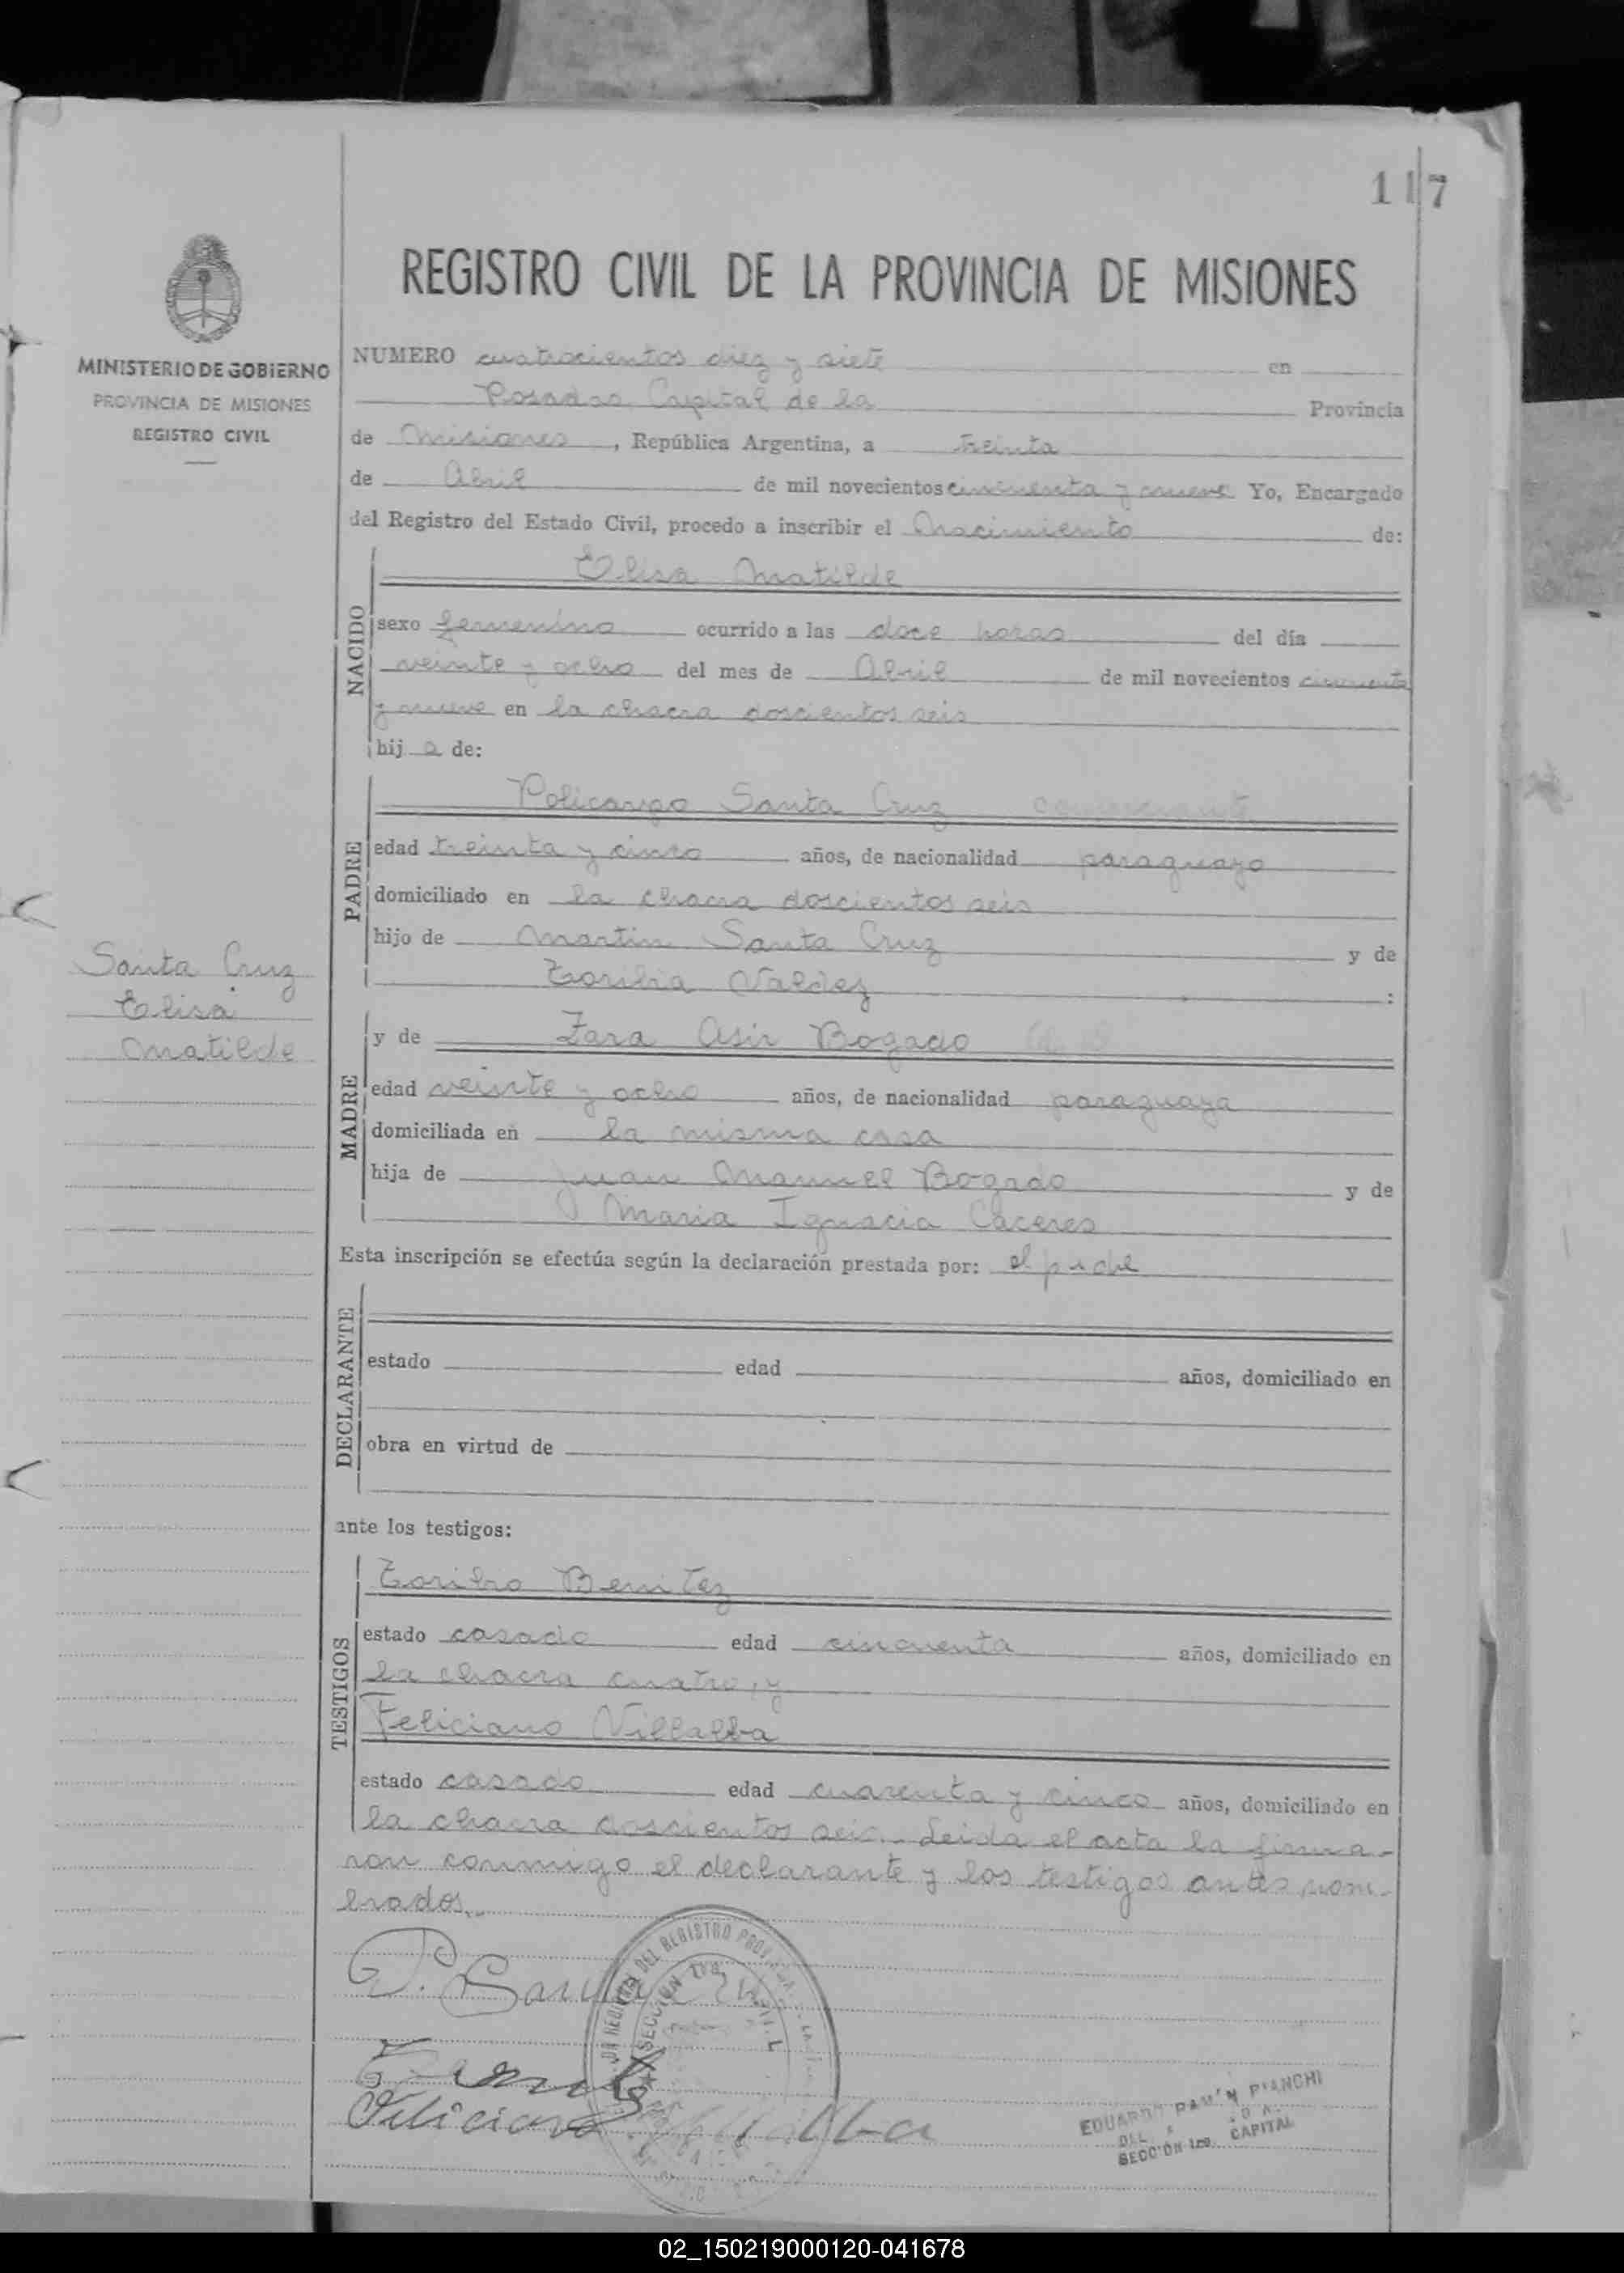 117
REGISTRO CIVIL DE LA PROVINCIA DE MISIONES
MINISTERIO DE GOBIERNO
PROVINCIA DE MISIONES
REGISTRO CIVIL
NUMERO cuatrocientos diez y siete en
Posadas Capital de la Provincia
de Misiones, República Argentina, a treinta
de Abril de mil novecientos cincuenta y nueve Yo, Encargado
del Registro del Estado Civil, procedo a inscribir el Nacimiento de:
Elisa Matilde
NACIDO
sexo femenino ocurrido a las doce horas del día
veinte y ocho del mes de Abril de mil novecientos cincuenta
y nueve en la chacra doscientos seis
hij a de:
Policarpo Santa Cruz
PADRE
edad treinta y cinco años, de nacionalidad paraguayo
domiciliado en la chacra doscientos seis
hijo de Martin Santa Cruz y de
Toribia Valdez :
Santa Cruz
Elisa
Matilde
y de Zara Asir Bogado
MADRE
edad veinte y ocho años, de nacionalidad paraguaya
domiciliada en la misma casa
hija de Juan Manuel Bogado y de
Maria Ignacia Cáceres
Esta inscripción se efectúa según la declaración prestada por: el padre
DECLARANTE
estado edad años, domiciliado en
obra en virtud de
ante los testigos:
TESTIGOS
Toribio Benitez
estado casado edad cincuenta años, domiciliado en
la chacra cuatro, y
Feliciano Villalba
estado casado edad cuarenta y cinco años, domiciliado en
la chacra doscientos seis. Leida el acta la firma-
ron conmigo el declarante y los testigos antes nom-
brados.
P. Santa Cruz
Feliciano Villalba
DEL REGISTRO
SECCION 1ra.
EDUARDO RAMON PIANCHI
SECCION 1ra. CAPITAL
02_150219000120-041678